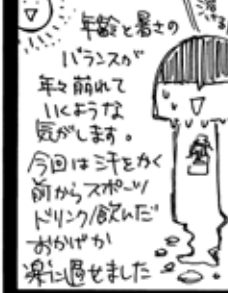 年齢と暑さの
バランスが
年々崩れて
いくような
気がします。
今回は汗をかく
前からスポーツ
ドリンク飲んだ
おかげか
楽に過せました